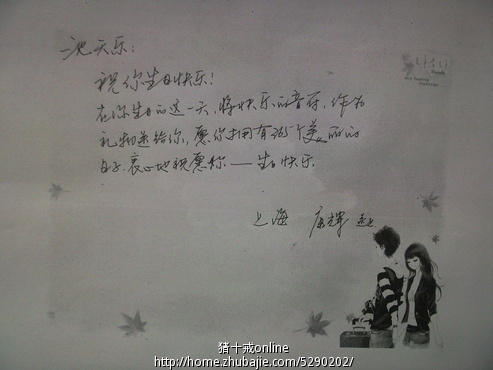 一池天乐:
祝你生日快乐!
在你生日的这一天,将快乐的音符,作为
礼物送给你,愿你拥有365个美丽的
日子,衷心地祝愿你——生日快乐
上海 康辉
猪十戒online
http://home.zhubajie.com/5290202/